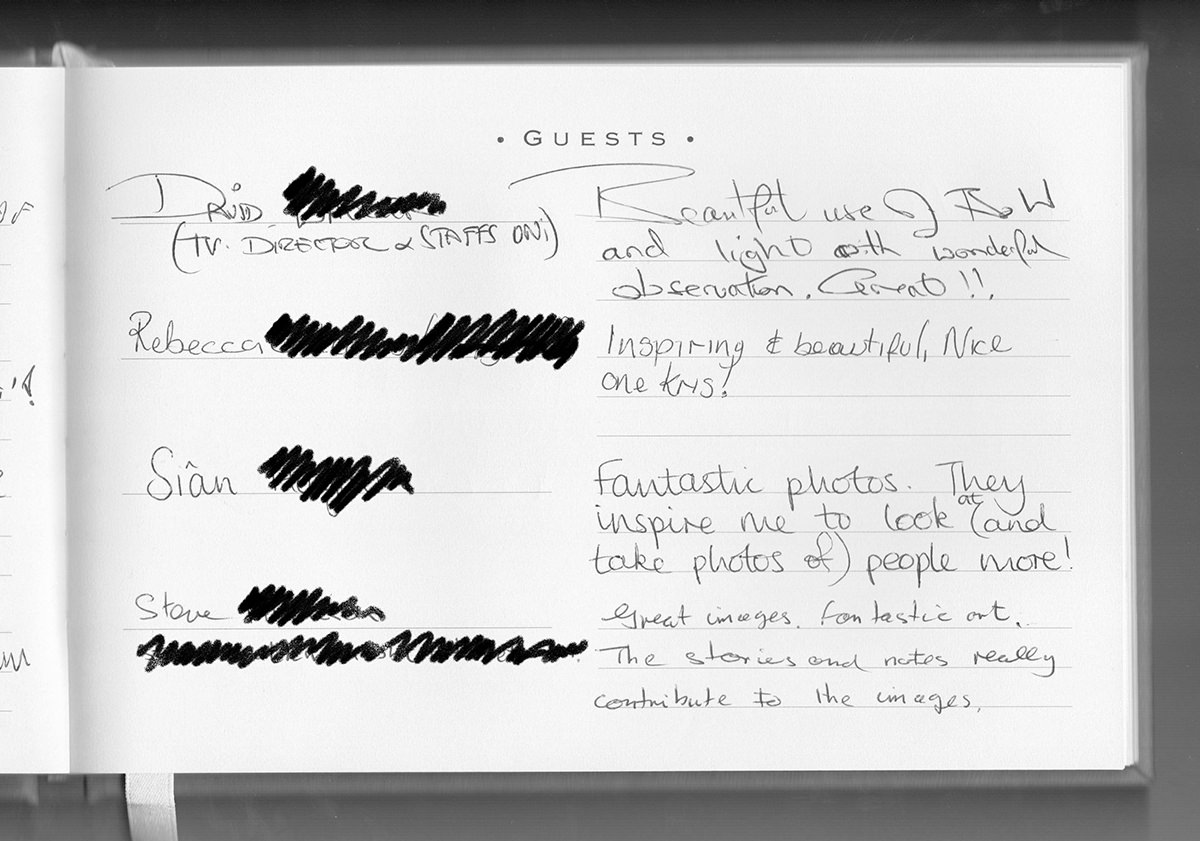 • GUESTS •
DAVID
Beautiful use of B&W
(TV. DIRECTOR & STAFFS UNI)
and light with wonderful
observation. Great!!.
Rebecca
Inspiring & beautiful, Nice
one Kris!
Siân
Fantastic photos. They
inspire me to look at (and
take photos of) people more!
Steve
Great images. Fantastic art.
The stories and notes really
contribute to the images.